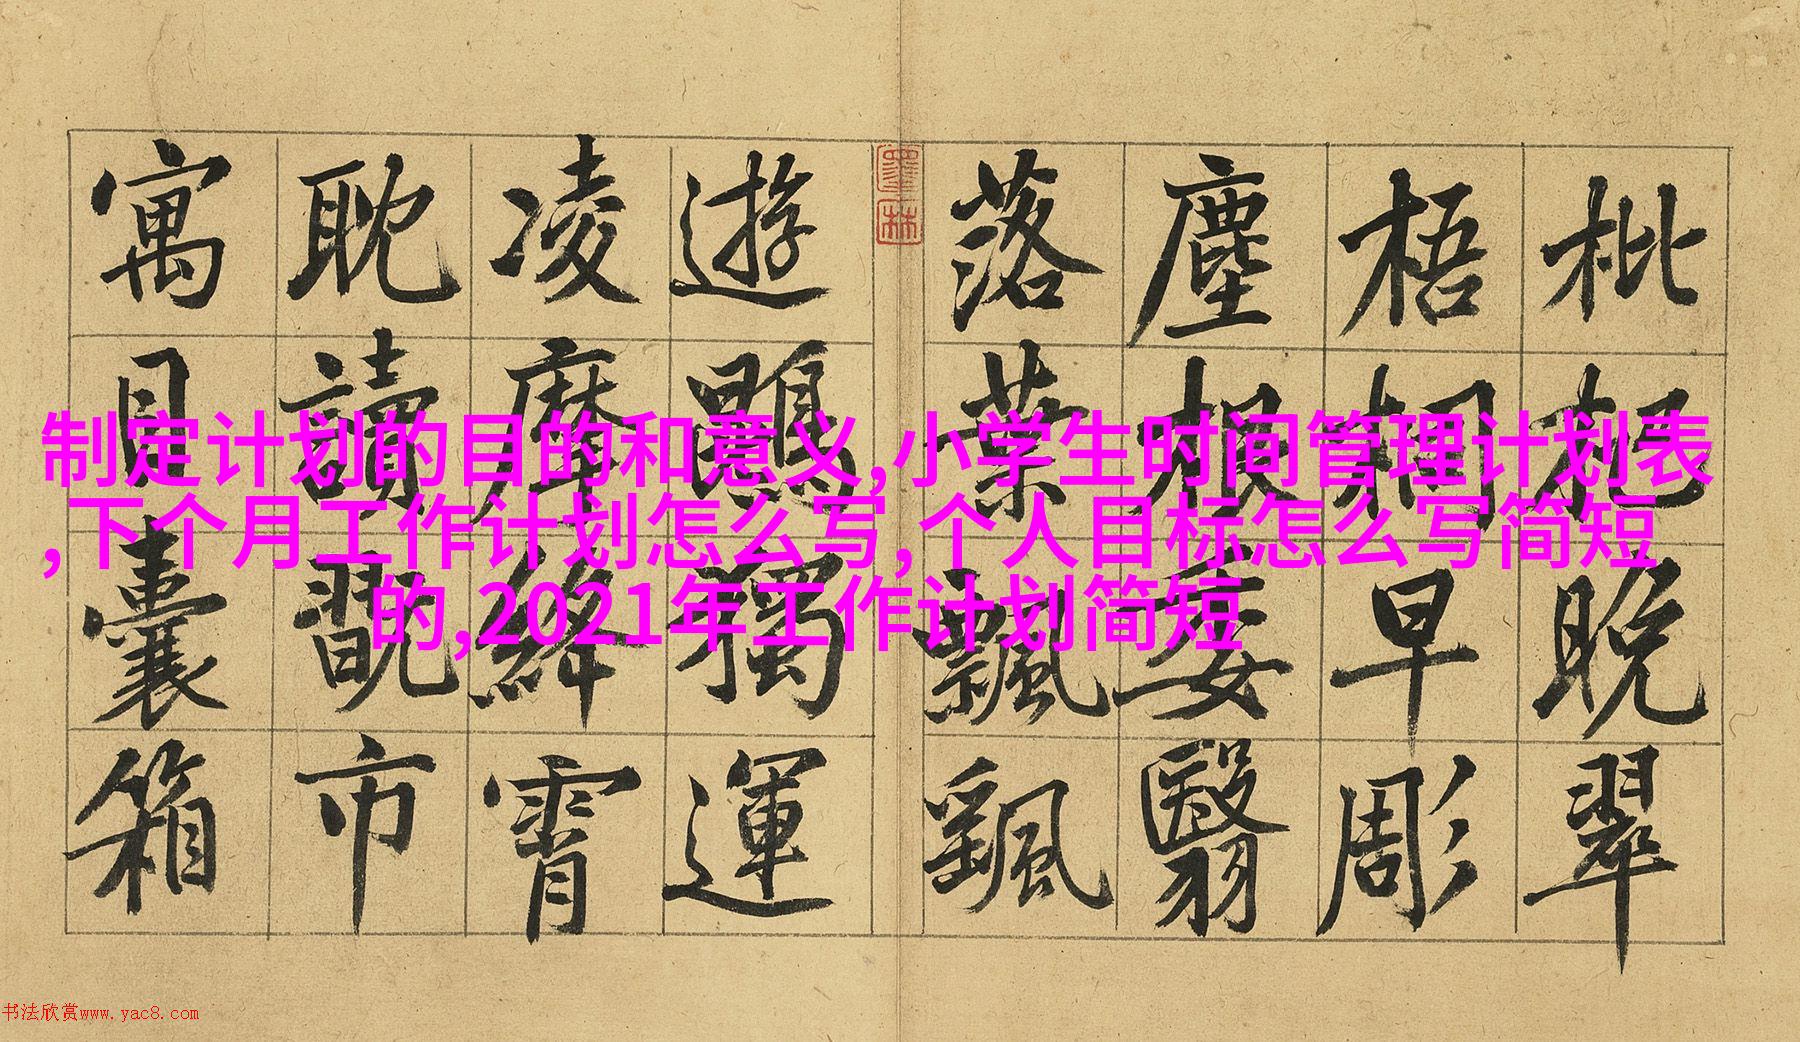 枇杷晚翠
梧桐早彫
塵根委翳
落葉飄颻
墨林
遊鵾獨運
凌摩絳霄
耽讀翫市
寓目囊箱
制定计划的目的和意义,小学生时间管理计划表
,下个月工作计划怎么写,个人目标怎么写简短
的,2021年工作计划简短
书法欣赏www.yac8.com